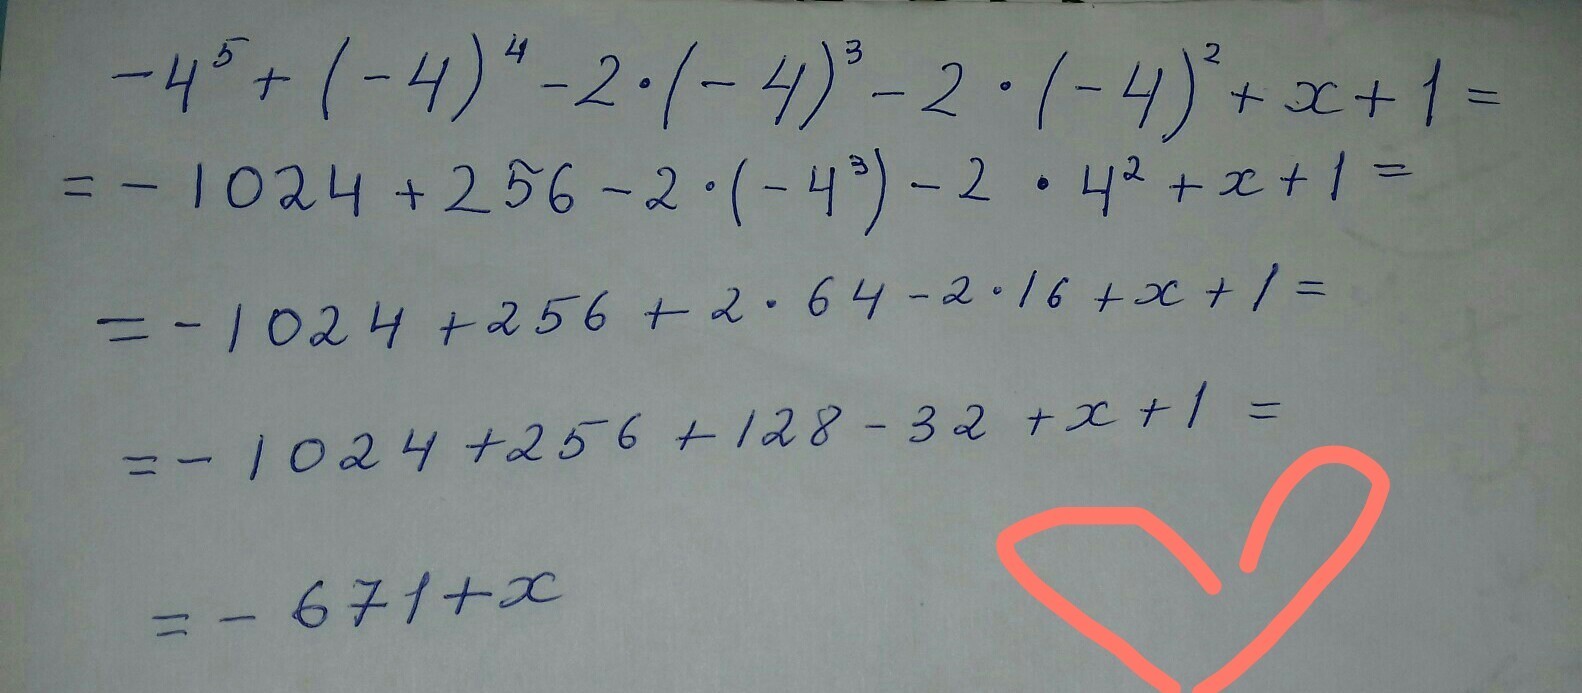 -4⁵ + (-4)⁴ - 2 · (-4)³ - 2 · (-4)² + x + 1 =
= - 1024 + 256 - 2 · (-4³) - 2 · 4² + x + 1 =
= - 1024 + 256 + 2 · 64 - 2 · 16 + x + 1 =
= - 1024 + 256 + 128 - 32 + x + 1 =
= - 671 + x